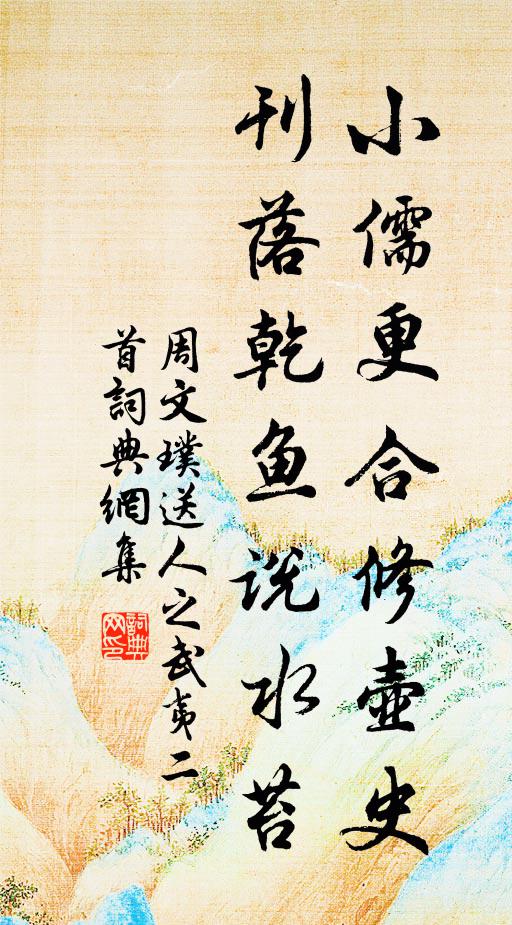 小儒更合修壺史
刊落乾魚说水苔
周文璞送人之武夷二
首詞典網集
詞典網印